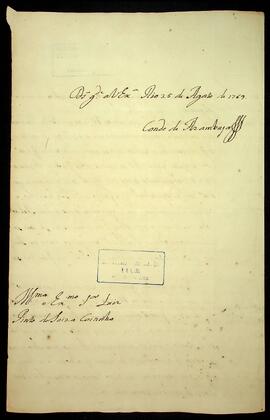 Ds. gde. a V Exa. Rio 25 de Agosto de 1769
Conde de Azambuja
Illmo. e Exmo. Snr. Luiz
Pinto de Souza Coutinho